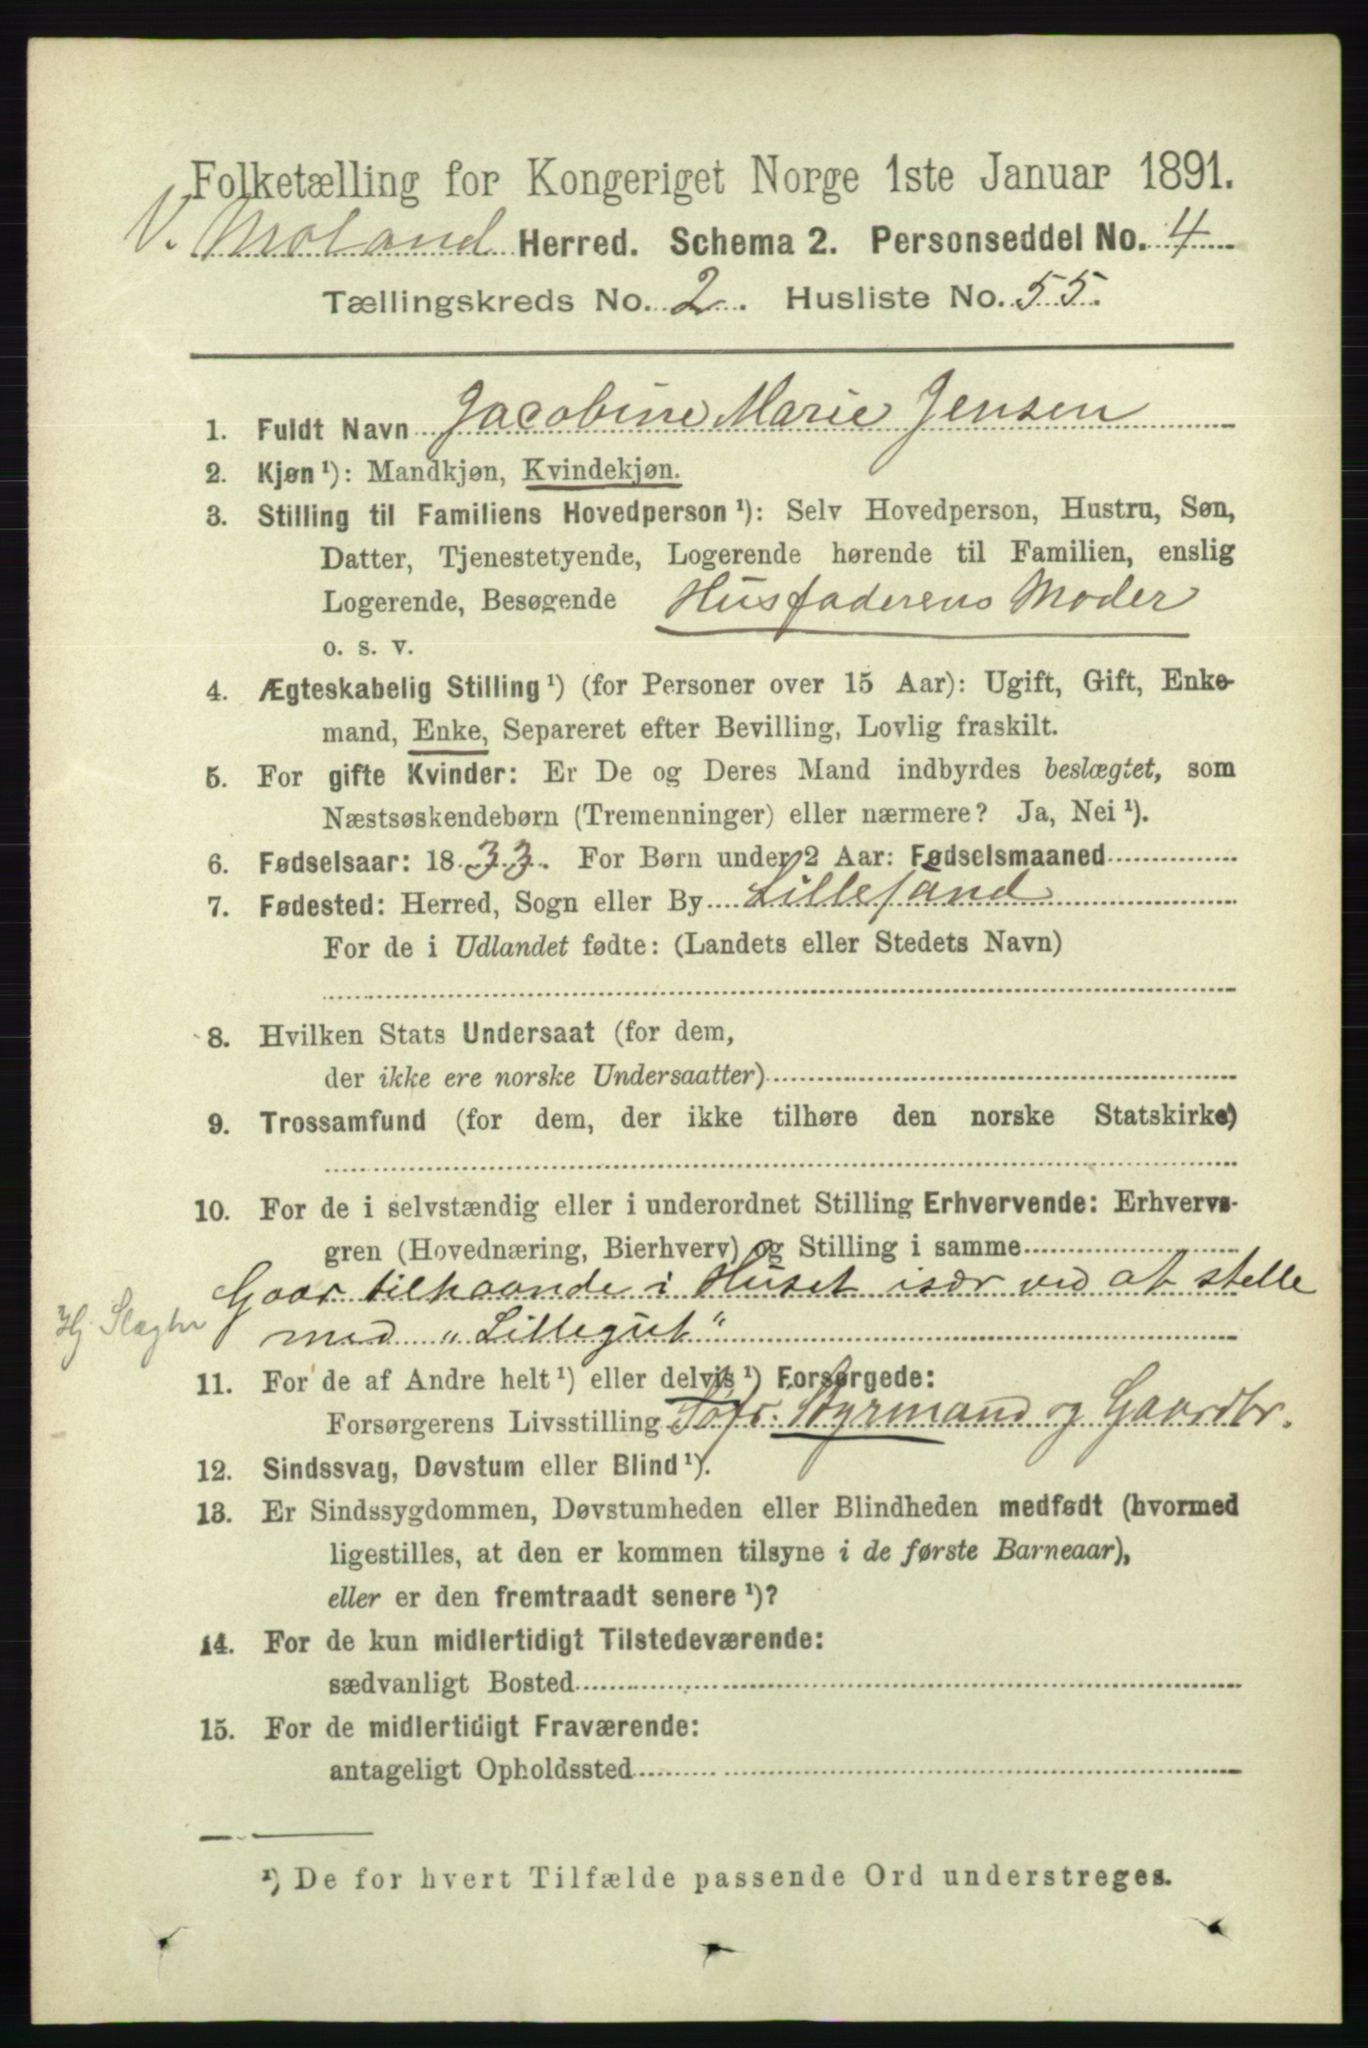 Folketælling for Kongeriget Norge 1ste Januar 1891.
V. Moland Herred. Schema 2. Personseddel No. 4
Tællingskreds No. 2. Husliste No. 55.
1. Fuldt Navn Jacobine Marie Jensen
2. Kjøn ¹): Mandkjøn, Kvindekjøn.
3. Stilling til Familiens Hovedperson ¹): Selv Hovedperson, Hustru, Søn,
Datter, Tjenestetyende, Logerende hørende til Familien, enslig
Logerende, Besøgende Husfaderens Moder
o. s. v.
4. Ægteskabelig Stilling ¹) (for Personer over 15 Aar): Ugift, Gift, Enke-
mand, Enke, Separeret efter Bevilling, Lovlig fraskilt.
5. For gifte Kvinder: Er De og Deres Mand indbyrdes beslægtet, som
Næstsøskendebørn (Tremenninger) eller nærmere? Ja, Nei ¹).
6. Fødselsaar: 1833. For Børn under 2 Aar: Fødselsmaaned
7. Fødested: Herred, Sogn eller By Lillesand
For de i Udlandet fødte: (Landets eller Stedets Navn)
8. Hvilken Stats Undersaat (for dem,
der ikke ere norske Undersaatter)
9. Trossamfund (for dem, der ikke tilhøre den norske Statskirke)
10. For de i selvstændig eller i underordnet Stilling Erhvervende: Erhvervs-
gren (Hovednæring, Bierhverv) og Stilling i samme
Gaar tilhaande i Huset især ved at stelle
Hj. Slægtn med „Lillegut"
11. For de af Andre helt ¹) eller delvis ¹) Forsørgede:
Forsørgerens Livsstilling Styrmand og Gaardbr.
12. Sindssvag, Døvstum eller Blind ¹).
13. Er Sindssygdommen, Døvstumheden eller Blindheden medfødt (hvormed
ligestilles, at den er kommen tilsyne i de første Barneaar),
eller er den fremtraadt senere ¹)?
14. For de kun midlertidigt Tilstedeværende:
sædvanligt Bosted
15. For de midlertidigt Fraværende:
antageligt Opholdssted
¹) De for hvert Tilfælde passende Ord understreges.